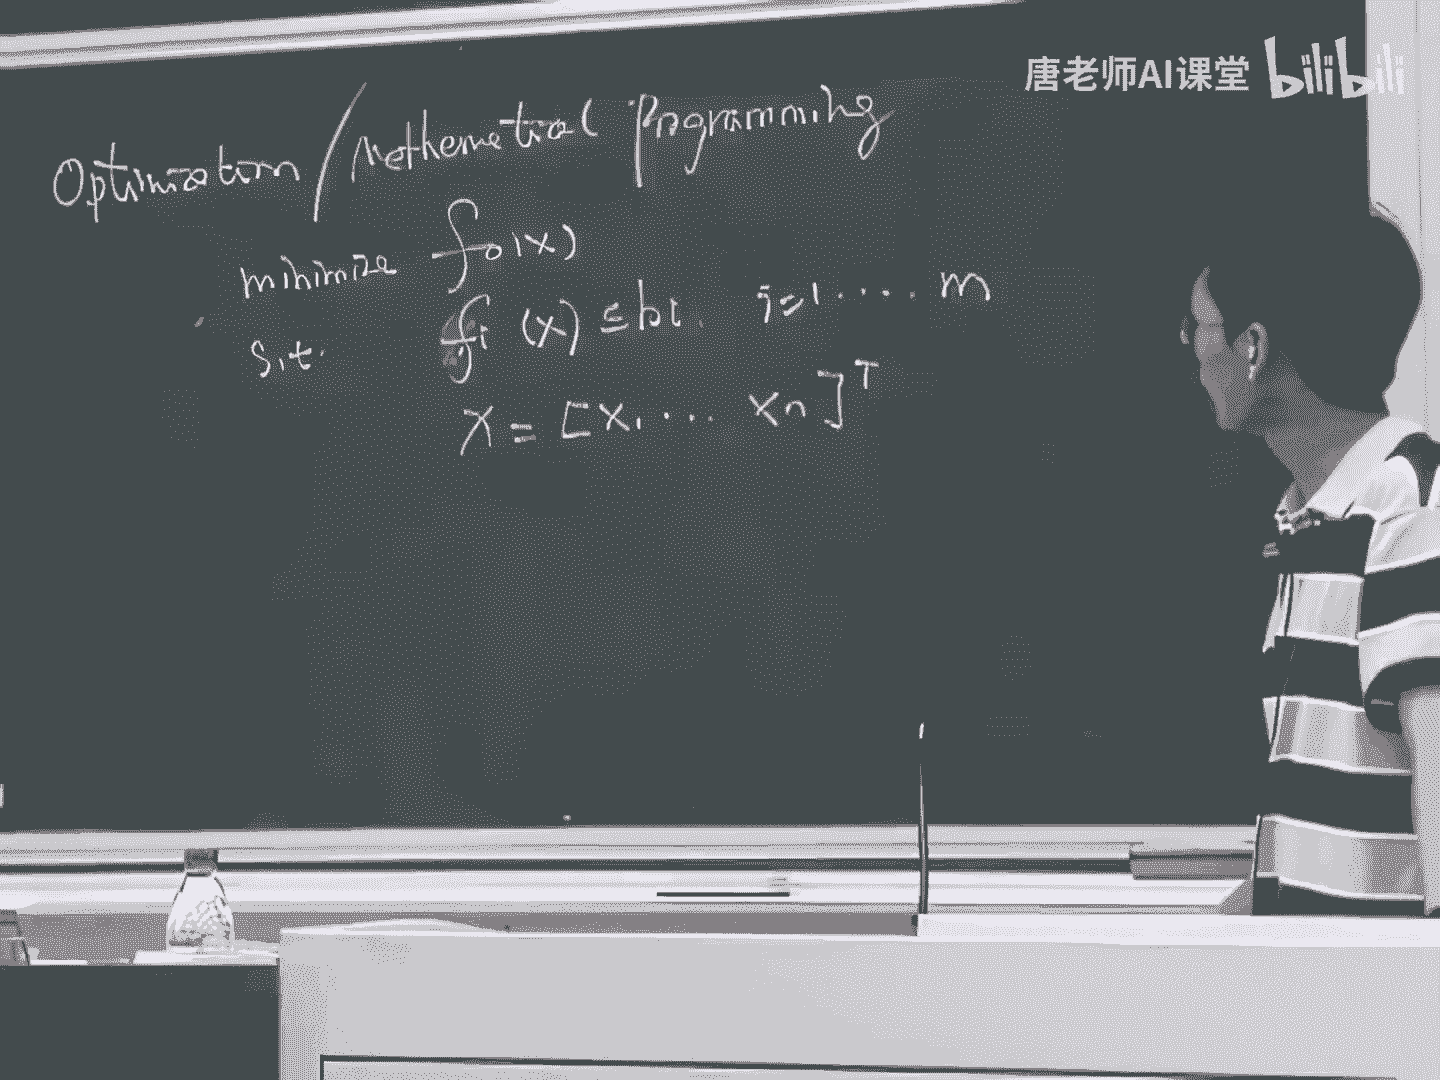 唐老师AI课堂 bilibili
Optimization / Mathematical Programming
minimize f₀(x)
s.t. fᵢ(x) ≤ bᵢ. i=1····m
x = [x₁ ··· xₙ]ᵀ